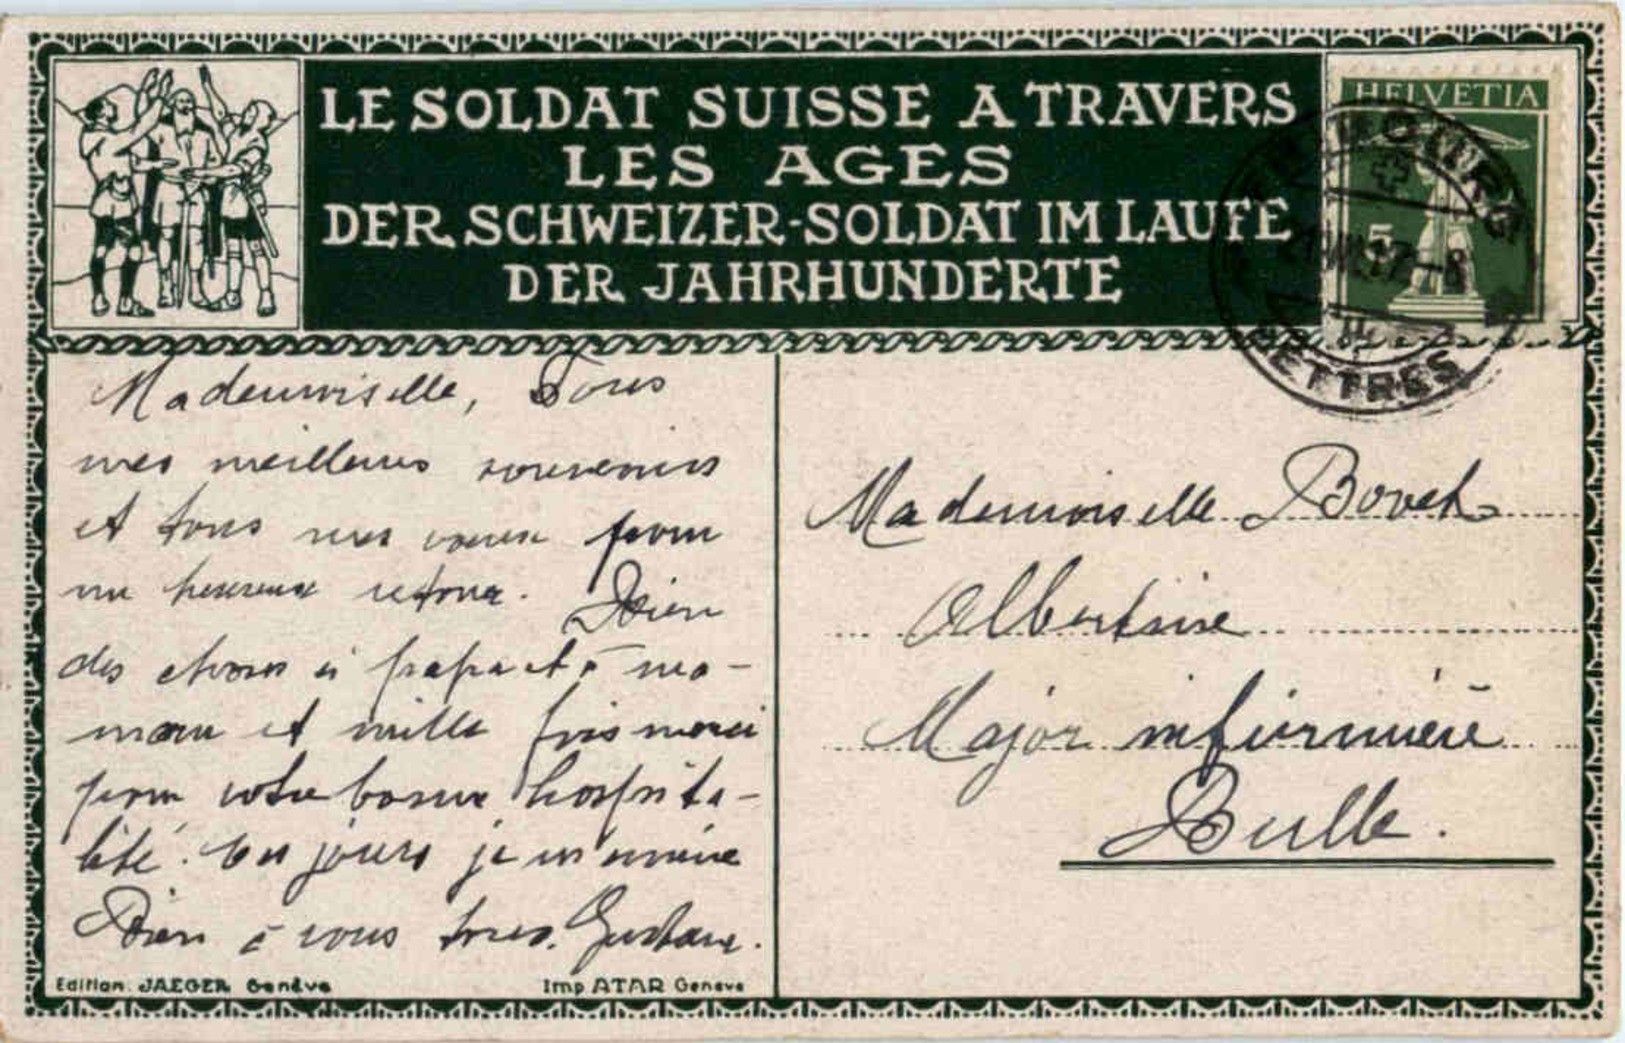 LE SOLDAT SUISSE A TRAVERS
LES AGES
DER SCHWEIZER-SOLDAT IM LAUFE
DER JAHRHUNDERTE
HELVETIA
5
FRIBOURG
17-8
LETTRES
Mademoiselle, Tous
mes meilleurs souvenirs
et tous mes voeux pour
un heureux retour. Bien
des choses à papa et à ma-
man et mille fois merci
pour votre bonne hospita-
lité. Ces jours je m'ennuie
Bien à vous tous. Gustave.
Mademoiselle Bovet
Albertine
Major infirmière
Bulle.
Edition JAEGER Genève
Imp ATAR Genève